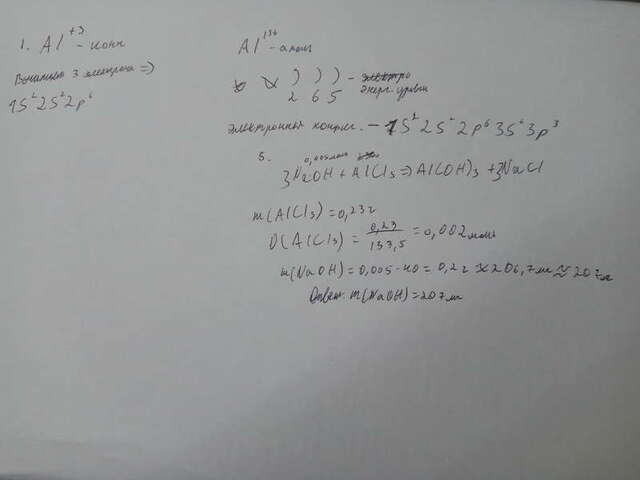 1. Al⁺³ - ион
Вычитаем 3 электрона =>
1S² 2S² 2p⁶
Al
) ) ) -
2 6 5 энерг. уровни
Электронная конфиг. - 1S² 2S² 2p⁶ 3S⁶ 3p³
5.
0,005моль
3NaOH + AlCl₃ => Al(OH)₃ + 3NaCl
m(AlCl₃) = 0,23г
υ(AlCl₃) = 0,23/133,5 = 0,002 моль
m(NaOH) = 0,005 · 40 = 0,2г 206,7 мг ≈ 207мг
Ответ: m(NaOH) = 207мг